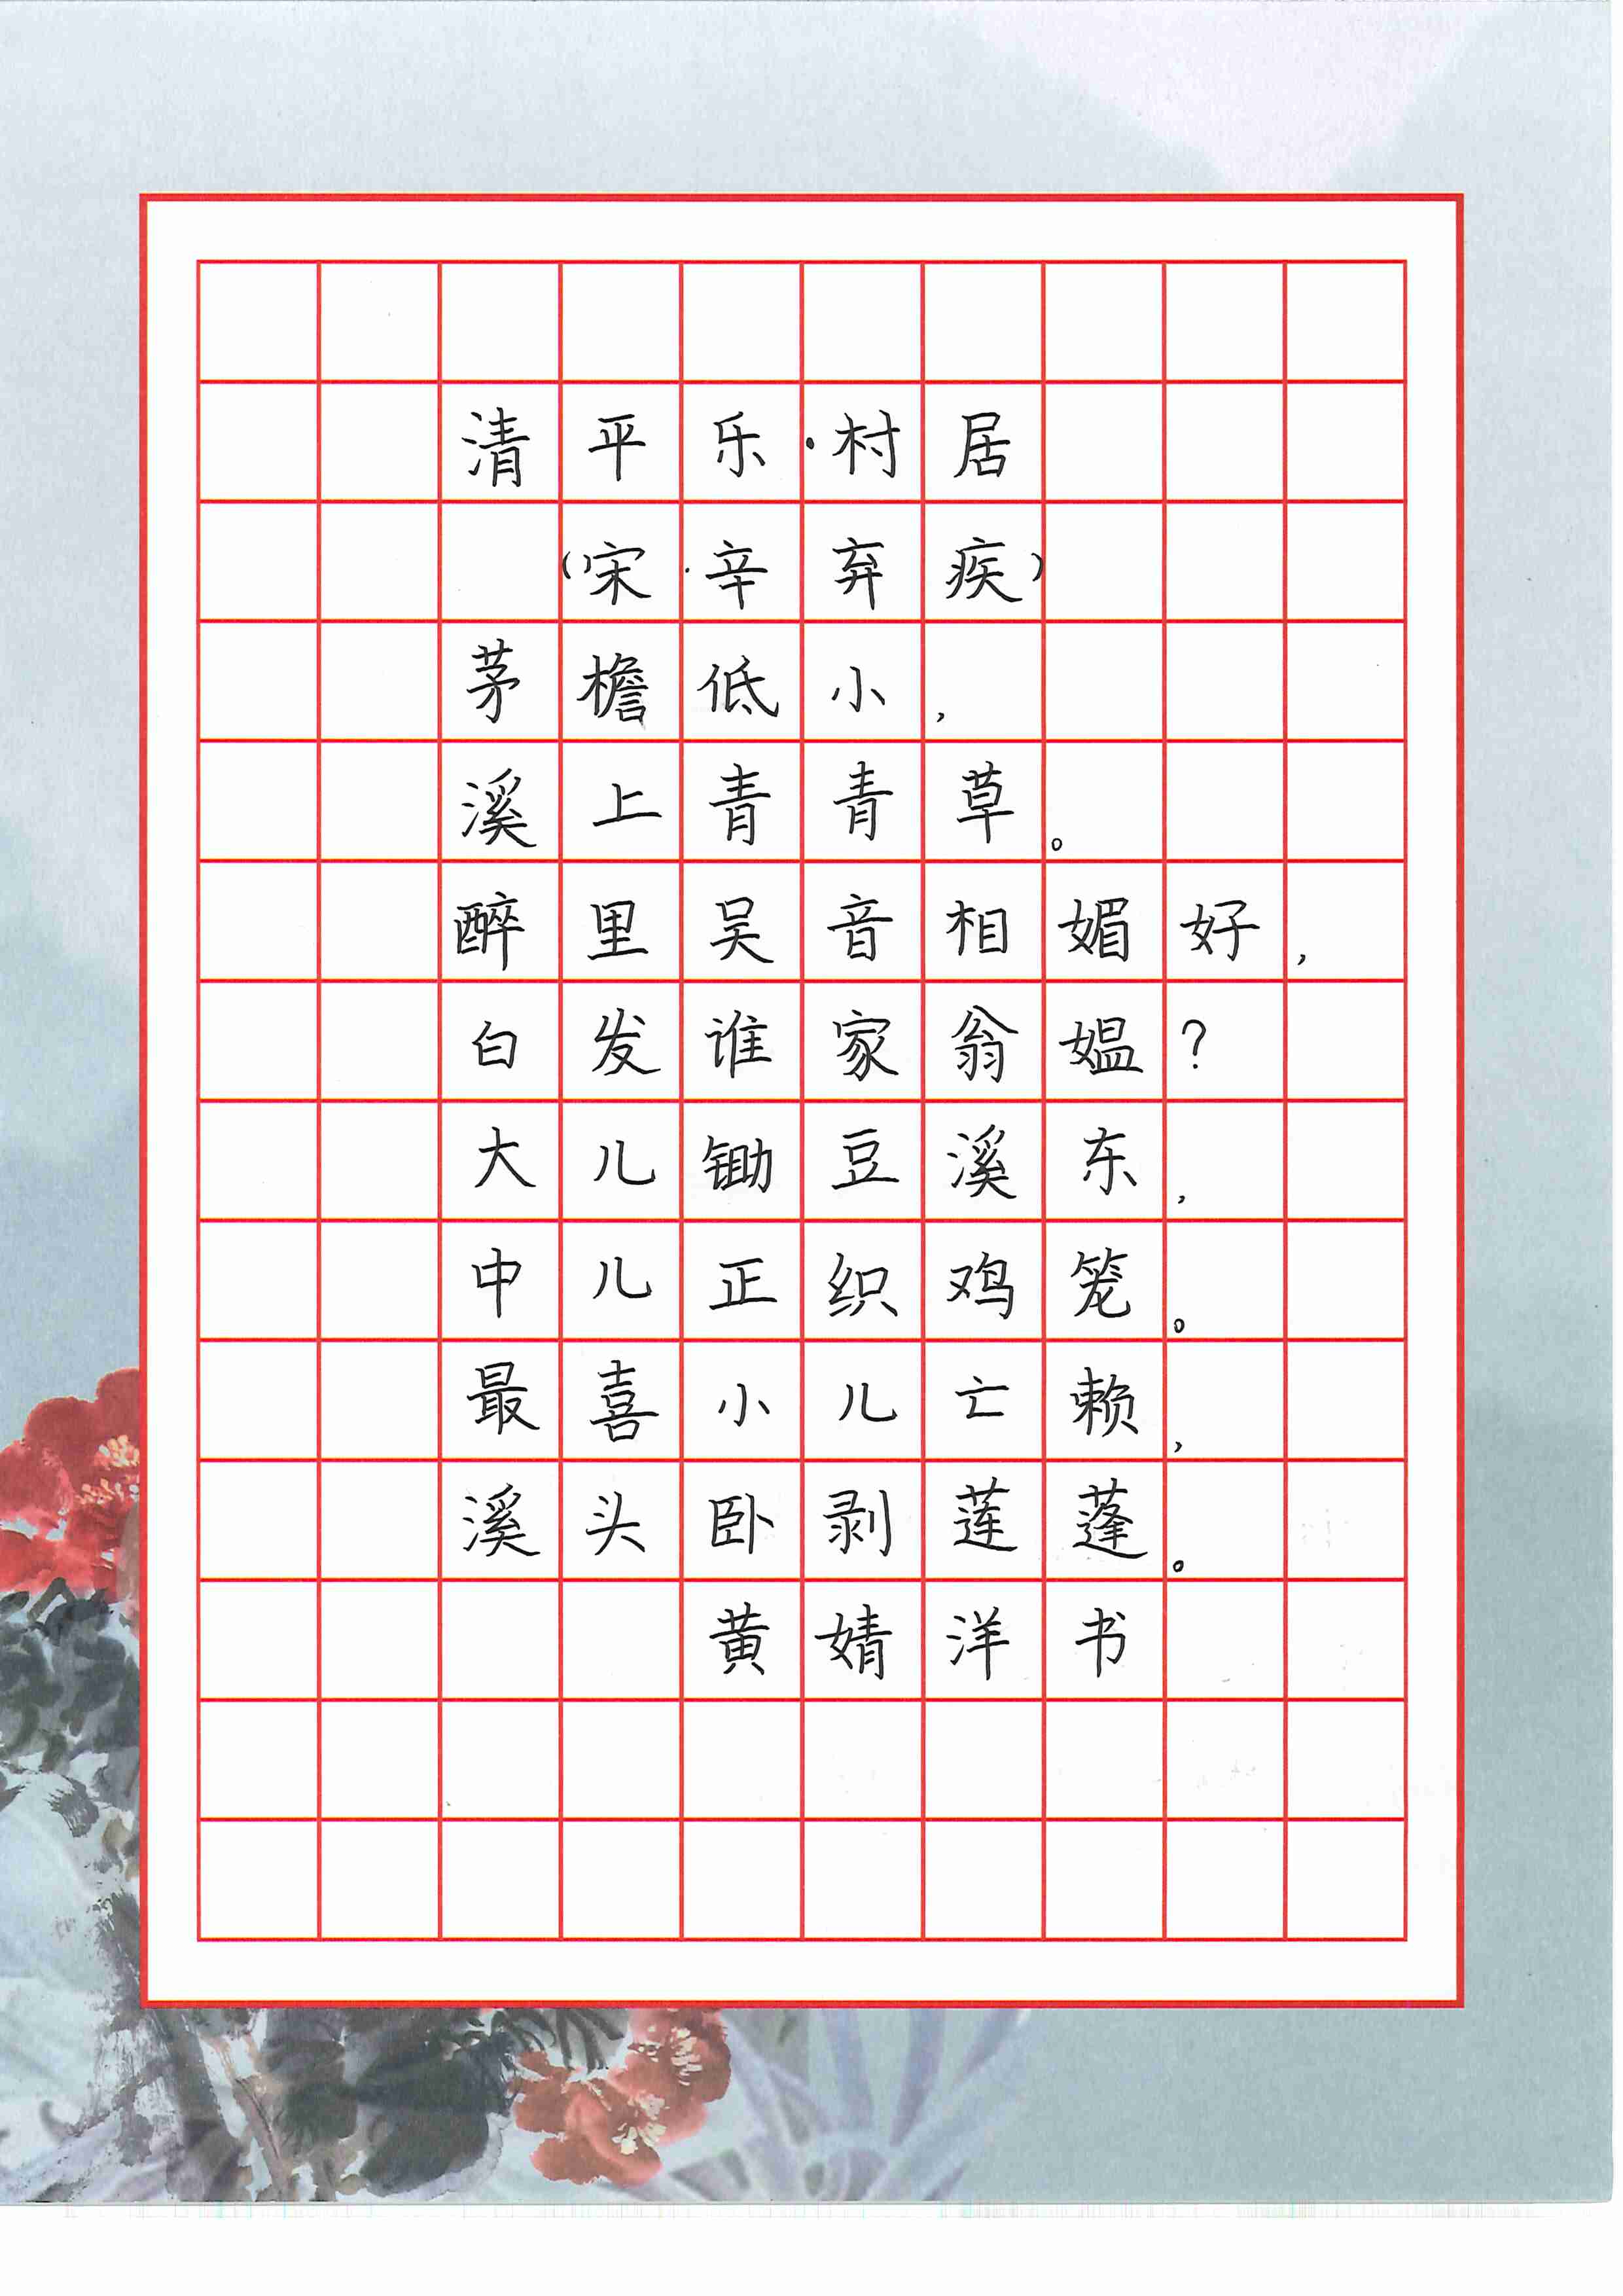 清平乐·村居
(宋·辛弃疾)
茅檐低小，
溪上青青草。
醉里吴音相媚好，
白发谁家翁媪？
大儿锄豆溪东，
中儿正织鸡笼。
最喜小儿亡赖，
溪头卧剥莲蓬。
黄婧洋书